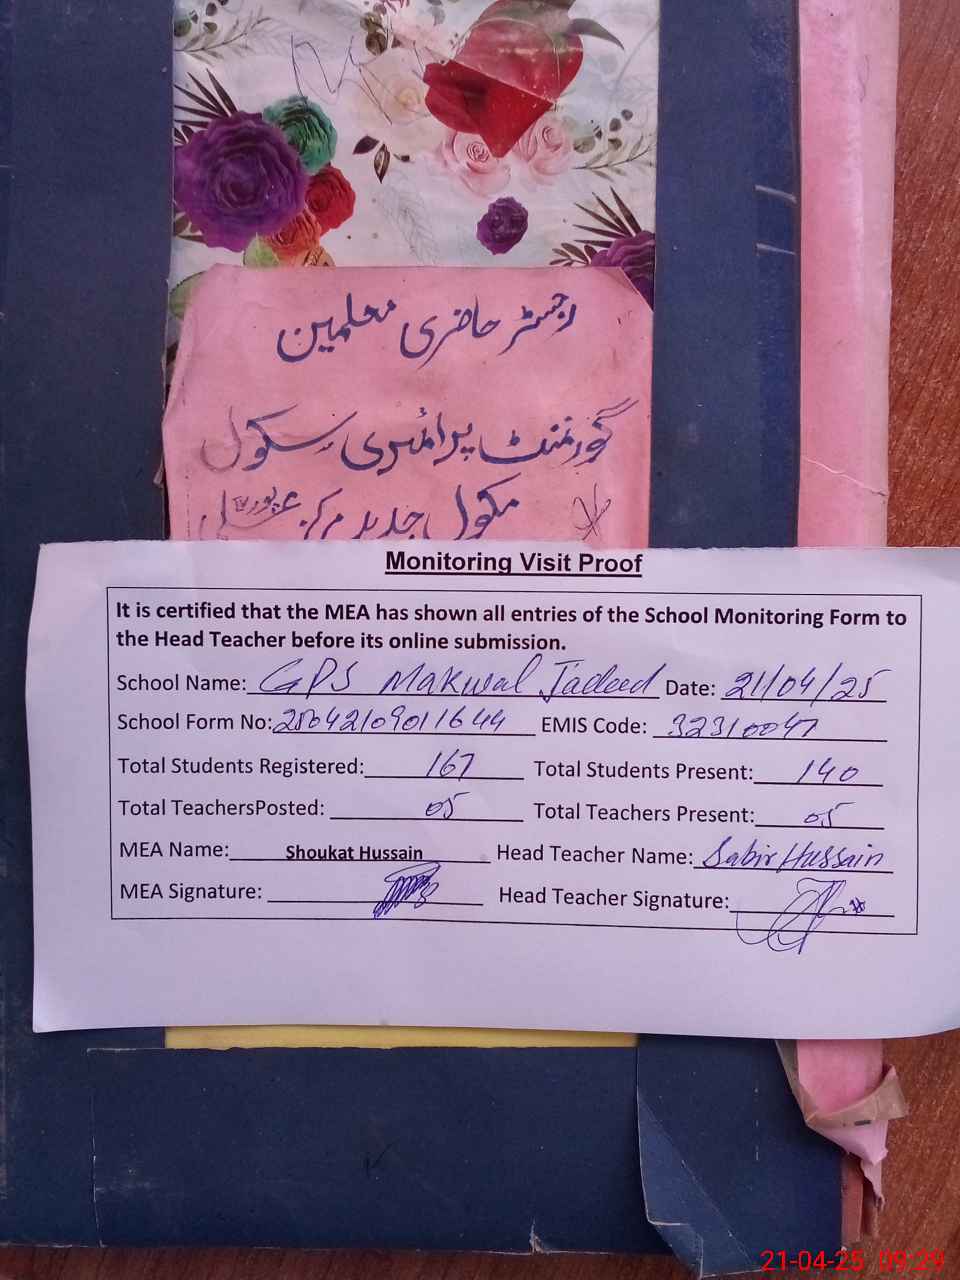 رجسٹر حاضری معلمین
گورنمنٹ پرائمری سکول
مکول جدید مرکز
Monitoring Visit Proof
It is certified that the MEA has shown all entries of the School Monitoring Form to
the Head Teacher before its online submission.
School Name: GPS Makwal Jadeed Date: 21/04/25
School Form No: 25042109011644 EMIS Code: 32310047
Total Students Registered: 167 Total Students Present: 140
Total TeachersPosted: 05 Total Teachers Present: 05
MEA Name: Shoukat Hussain Head Teacher Name: Sabir Hussain
MEA Signature: Head Teacher Signature:
21-04-25 09:29